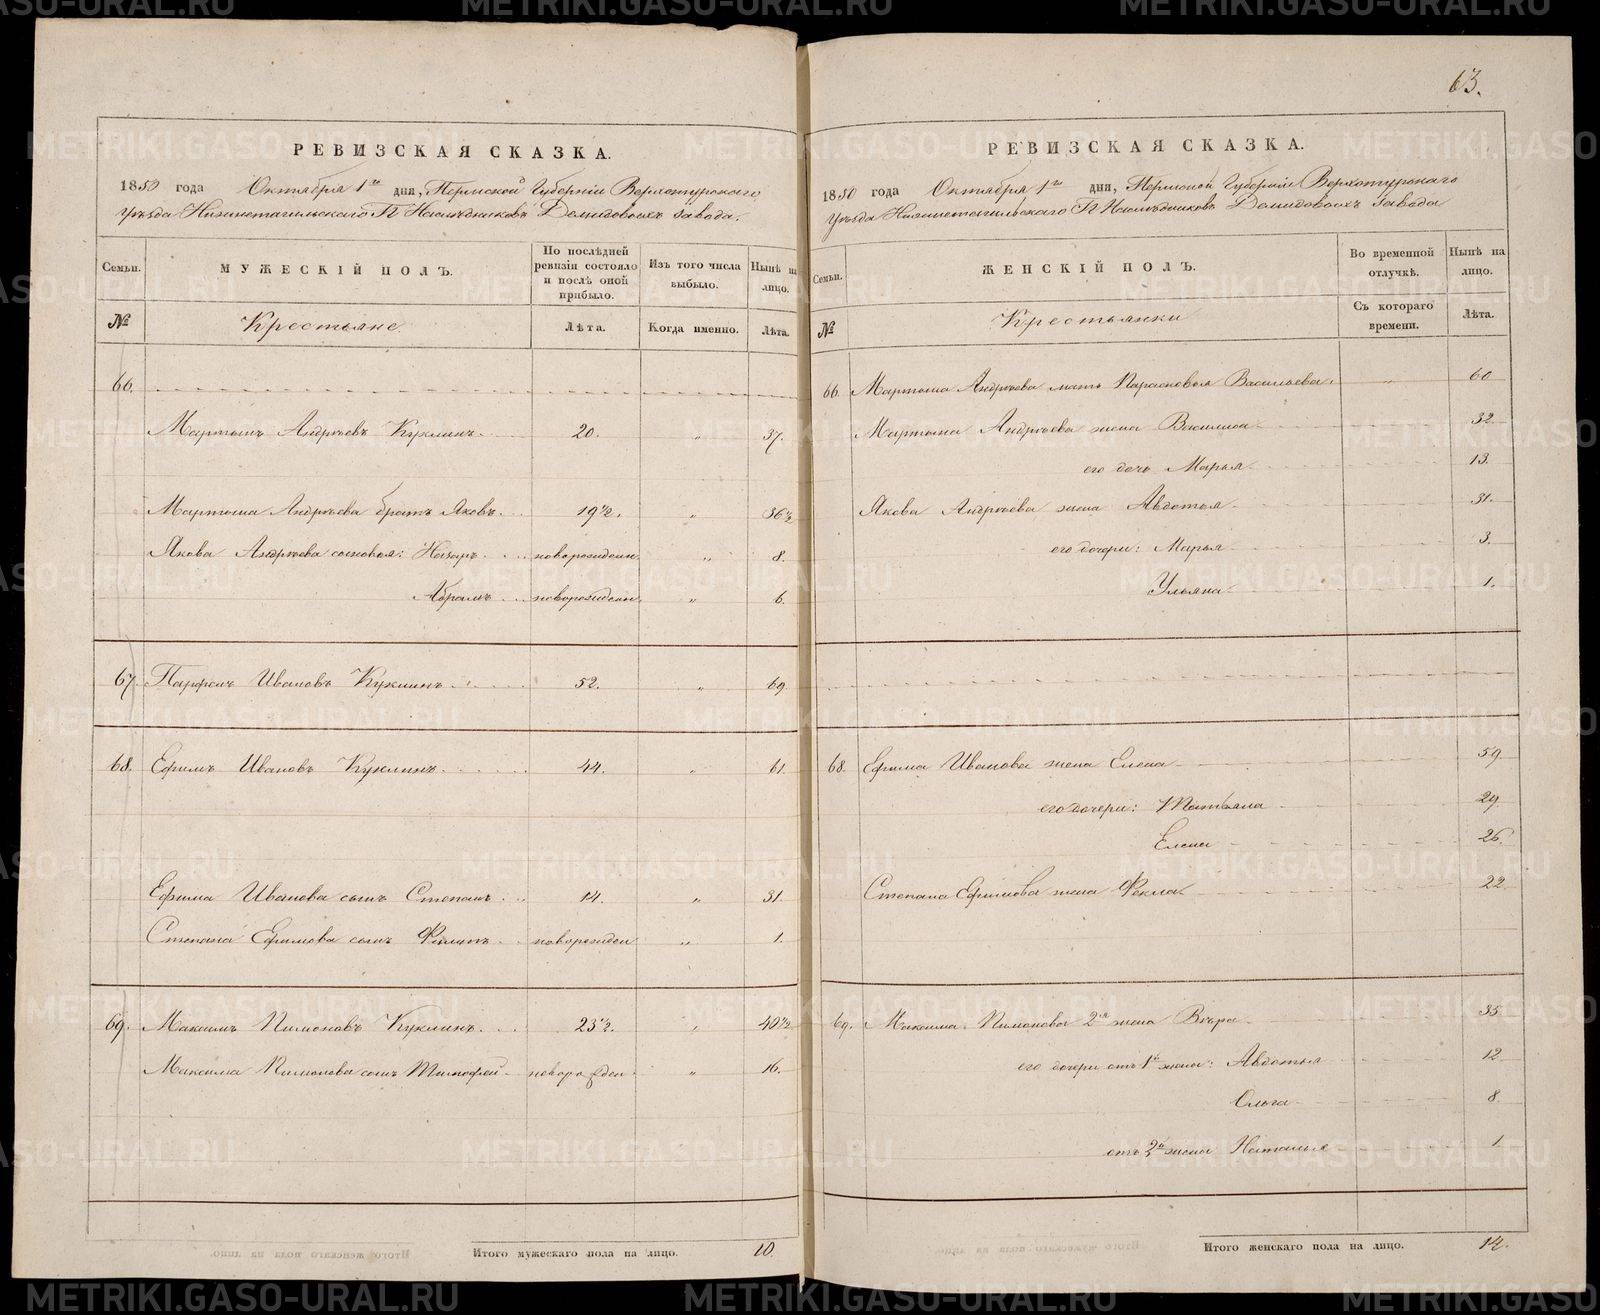 63.
РЕВИЗСКАЯ СКАЗКА.
1850 года Октября 1го дня, Пермской Губерніи Верхотурскаго
уѣзда Нижнетагильскаго Гг Наслѣдниковъ Демидовыхъ завода.
Семьи. МУЖЕСКІЙ ПОЛЪ. По послѣдней ревизіи состояло и послѣ оной прибыло. Изъ того числа выбыло. Нынѣ на лицо.
№ Крестьяне Лѣта. Когда именно. Лѣта.
66.
Мартынъ Андреевъ Куклинъ. 20. „ 37.
Мартына Андреева братъ Яковъ. 19½. „ 36½
Якова Андреева сыновья: Назаръ новорожденн. „ 8.
Абрамъ новорожденн. „ 6.
67. Парфенъ Ивановъ Куклинъ 52. „ 69.
68. Ефимъ Ивановъ Куклинъ 44. „ 61.
Ефима Иванова сынъ Степанъ 14. „ 31.
Степана Ефимова сынъ Филипъ новорожден „ 1.
69. Максимъ Пимоновъ Куклинъ. 23½. „ 40½
Максима Пимонова сынъ Тимофей новорожден „ 16.
Итого мужескаго пола на лицо. 10.
РЕВИЗСКАЯ СКАЗКА.
1850 года Октября 1го дня, Пермской Губерніи Верхотурскаго
уѣзда Нижнетагильскаго Гг Наслѣдниковъ Демидовыхъ завода
Семьи. ЖЕНСКІЙ ПОЛЪ. Во временной отлучкѣ. Нынѣ на лицо.
№ Крестьянки Съ котораго времени. Лѣта.
66. Мартына Андреева мать Парасковья Васильева. „ 60
Мартына Андреева жена Василиса 32
его дочь Марья 13.
Якова Андреева жена Авдотья 31.
его дочери: Марья 3.
Ульяна 1.
68. Ефима Иванова жена Елена 59
его дочери: Татьяна 29.
Елена 26.
Степана Ефимова жена Фекла 22
69. Максима Пимонова 2я жена Вѣра 35
его дочери отъ 1й жены: Авдотья 12
Ольга 8.
отъ 2й жены Наталья 1
Итого женскаго пола на лицо. 14.
METRIKI.GASO-URAL.RU